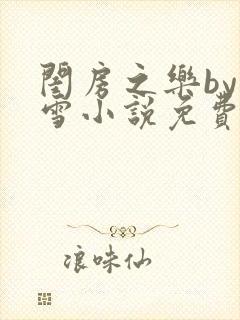 閨房之樂by
雪小說免費
浪味仙